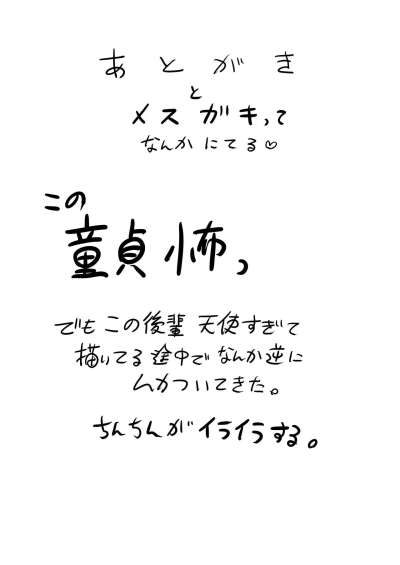 あとがき
と
メスガキって
なんかにてる♡
この
童貞怖っ
でもこの後輩 天使すぎて
描いてる途中でなんか逆に
ムカついてきた。
ちんちんがイライラする。